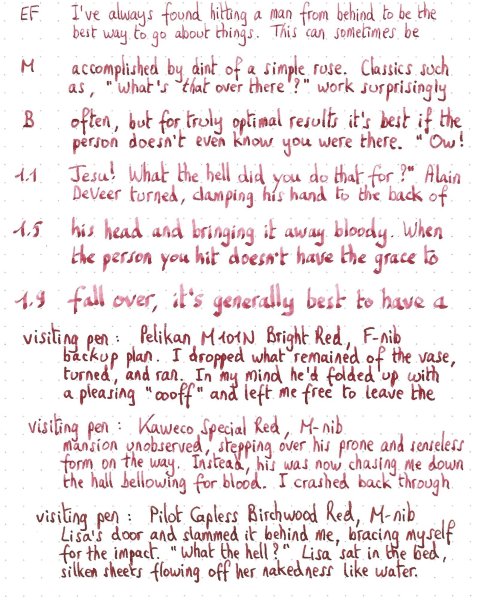 EF I've always found hitting a man from behind to be the
best way to go about things. This can sometimes be
M accomplished by dint of a simple ruse. Classics such
as, "what's that over there?" work surprisingly
B often, but for truly optimal results it's best if the
person doesn't even know you were there. "Ow!
1.1 Jesu! What the hell did you do that for?" Alain
DeVeer turned, clamping his hand to the back of
1.5 his head and bringing it away bloody. When
the person you hit doesn't have the grace to
1.9 fall over, it's generally best to have a
visiting pen: Pelikan M101N Bright Red, F-nib
backup plan. I dropped what remained of the vase,
turned, and ran. In my mind he'd folded up with
a pleasing "oooff" and left me free to leave the
visiting pen: Kaweco Special Red, M-nib
mansion unobserved, stepping over his prone and senseless
form on the way. Instead, his was now chasing me down
the hall bellowing for blood. I crashed back through
visiting pen: Pilot Capless Birchwood Red, M-nib
Lisa's door and slammed it behind me, bracing myself
for the impact. "What the hell?" Lisa sat in the bed,
silken sheets flowing off her nakedness like water.